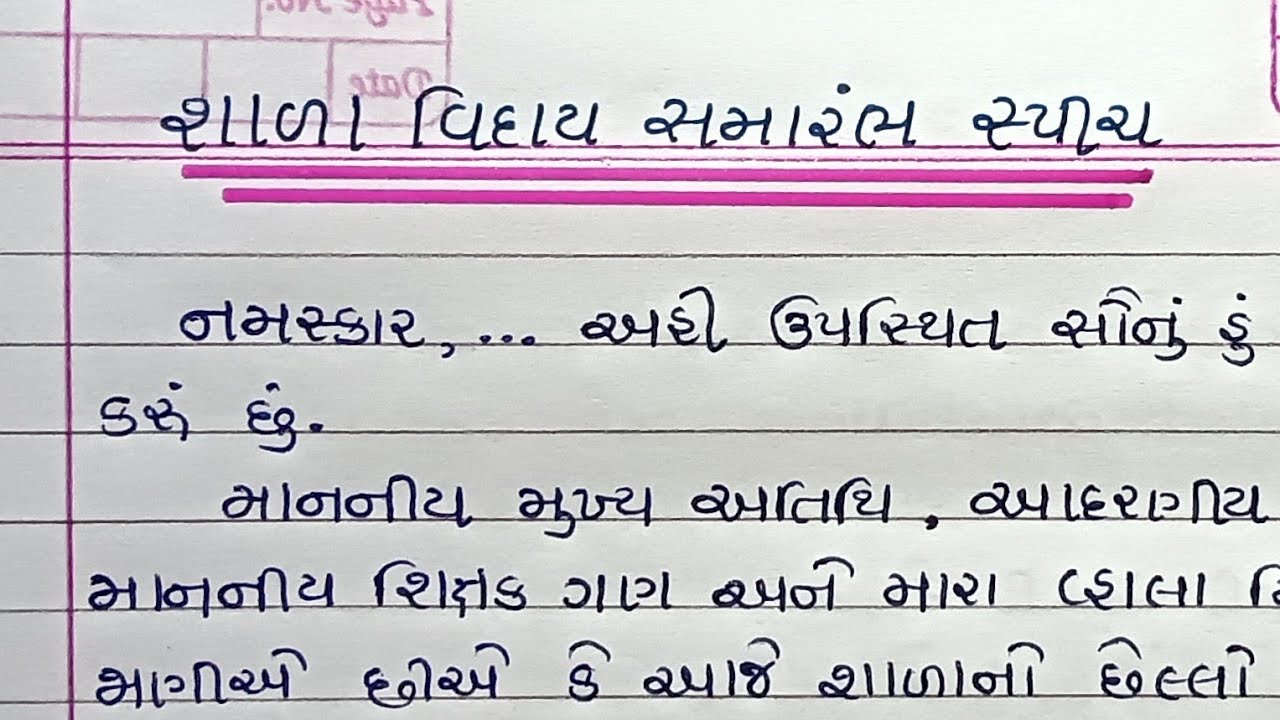 શાળા વિદાય સમારંભ સ્પીચ
નમસ્કાર, ... અહીં ઉપસ્થિત સૌનું હું
કરું છું.
માનનીય મુખ્ય અતિથિ, આદરણીય
માનનીય શિક્ષક ગણ અને મારા વ્હાલા
જાણીએ છીએ કે આજે શાળાનો છેલ્લો